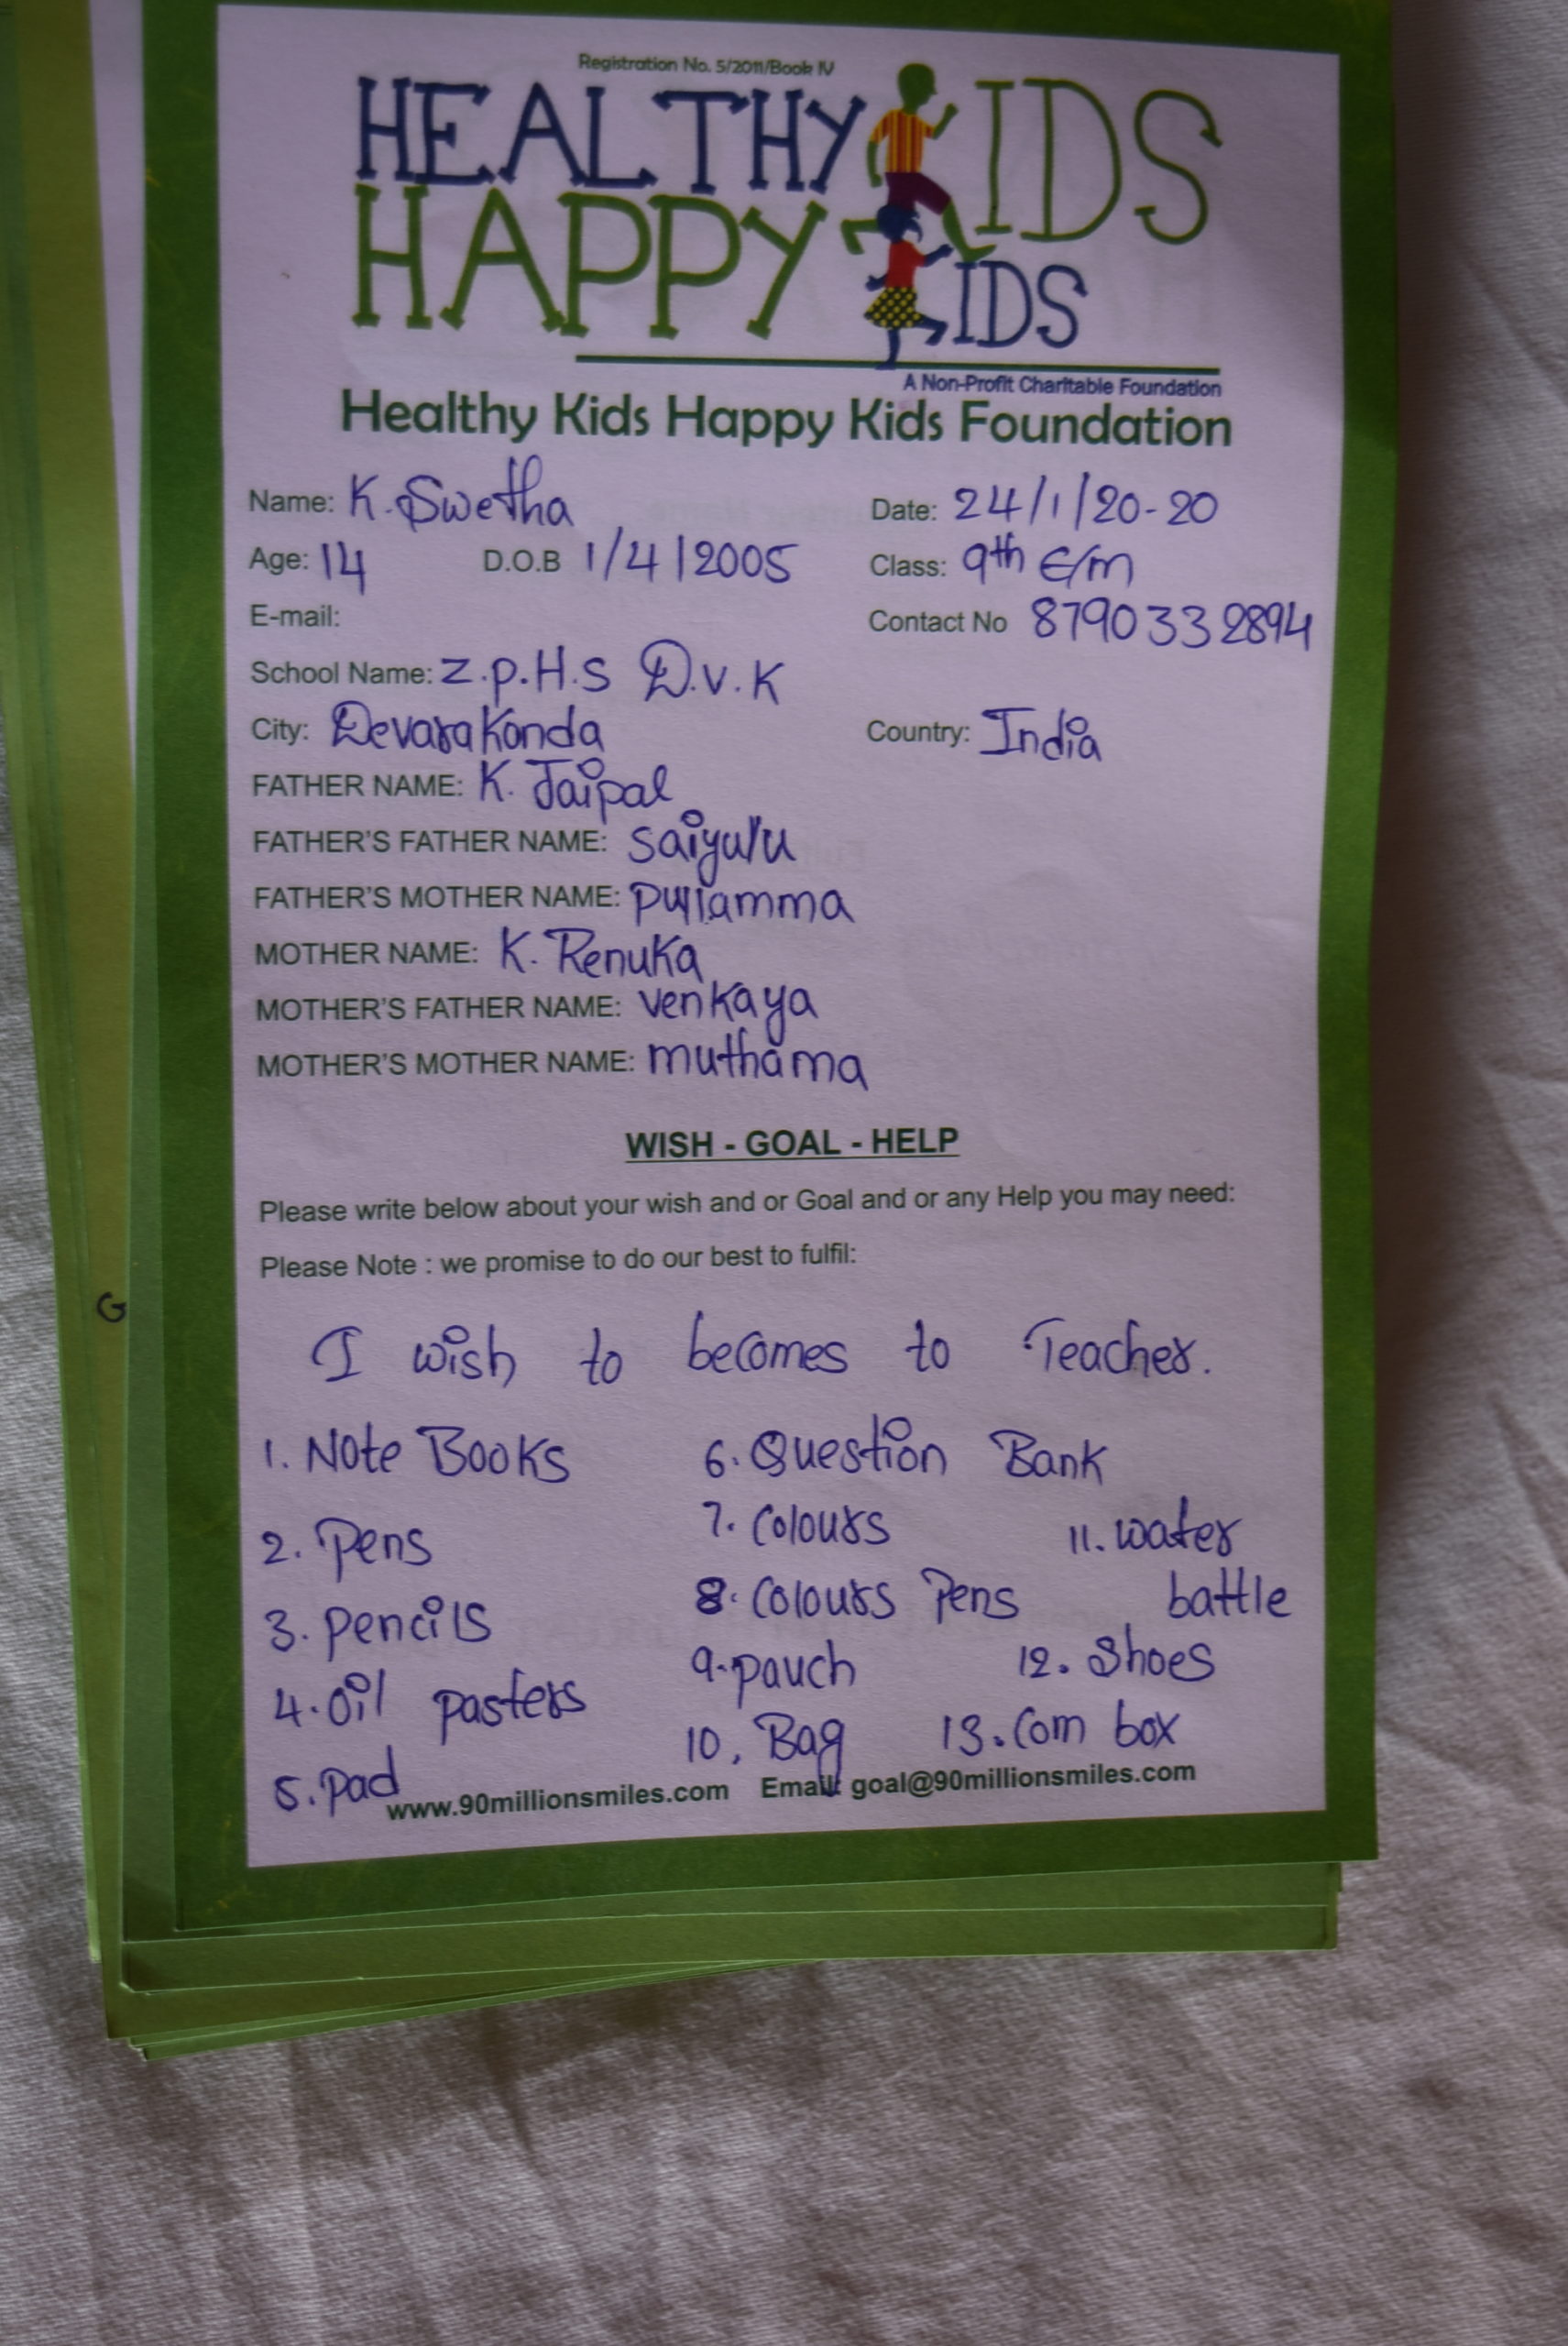 Registration No. 5/2011/Book IV
HEALTHY KIDS
HAPPY KIDS
A Non-Profit Charitable Foundation
Healthy Kids Happy Kids Foundation
Name: K. Swetha Date: 24/1/20-20
Age: 14 D.O.B 1/4/2005 Class: 9th E/m
E-mail: Contact No 8790332894
School Name: Z.P.H.S D.V.K
City: Devarakonda Country: India
FATHER NAME: K. Jaipal
FATHER'S FATHER NAME: Saiyulu
FATHER'S MOTHER NAME:
MOTHER NAME: K. Renuka
MOTHER'S FATHER NAME: Venkaya
MOTHER'S MOTHER NAME: muthama
WISH - GOAL - HELP
Please write below about your wish and or Goal and or any Help you may need:
Please Note : we promise to do our best to fulfil:
I wish to becomes to Teacher.
1. Note Books 6. Question Bank
2. Pens 7. Colours 11. water
3. pencils 8. Colours Pens battle
4. Oil pasters 9. pauch 12. Shoes
5. Pad 10. Bag 13. Com box
www.90millionsmiles.com Email: goal@90millionsmiles.com
G